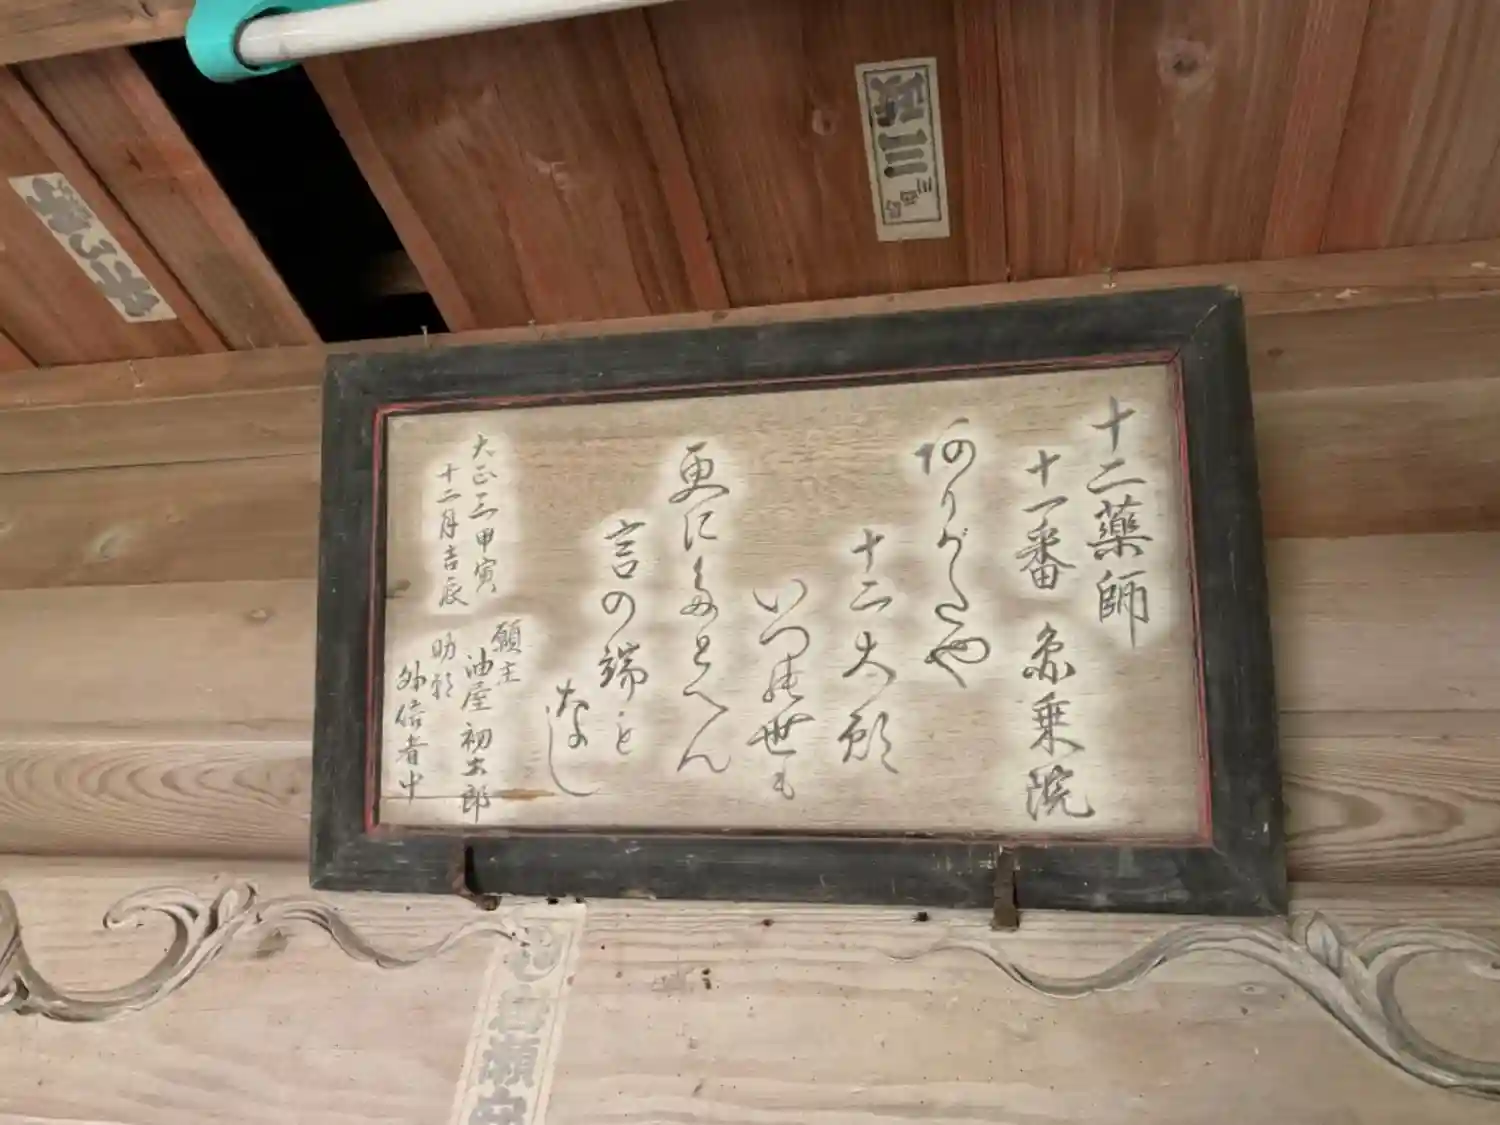 十二藥師
十一番 乗院
ありがたや
十二大願
いつの世も
更に多とへん
言の端も
なし
大正三甲寅
十二月吉辰
願主
油屋初太郎
助願
外信者中
政三